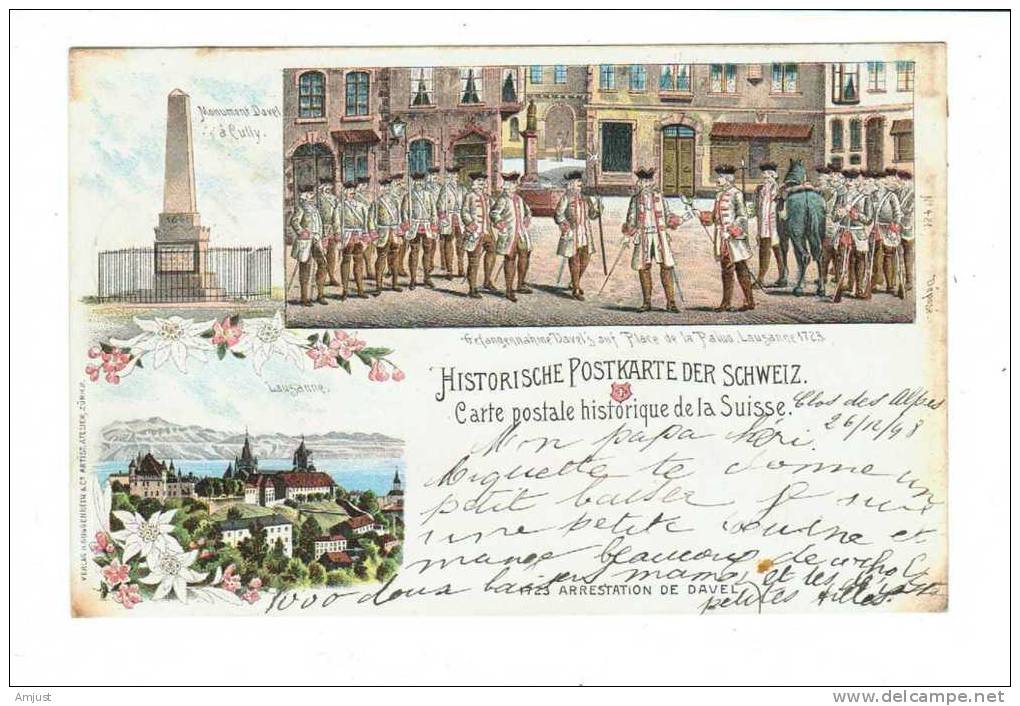 Monument Davel
à Cully.
Gefangennahme Davel's auf Place de la Palud, Lausanne 1723.
Historische Postkarte der Schweiz.
Carte postale historique de la Suisse.
Lausanne.
VERLAG H. GUGGENHEIM & Co. ARTIST. ATELIER, ZÜRICH.
Clos des Alpes
Mon papa
te donne un
petit baiser
une petite et
mange beaucoup de
1000 doux baisers et les
petites filles.
1723 ARRESTATION DE DAVEL
Amjust
www.delcampe.net